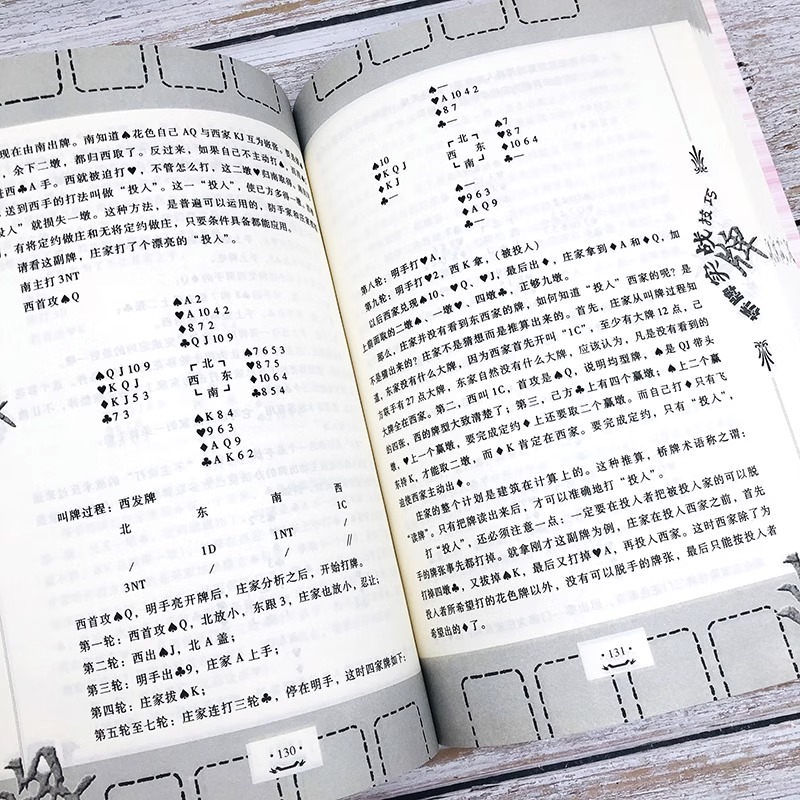 现在由南出牌。南知道♠花色自己 AQ 与西家 KJ 互为嵌张,
余下二墩,都归西取了。反过来,如果自己不主动打♠,
进西♣A 手。西就被迫打♥,不管怎么打,这二墩♥归南取得,
送到西手的打法叫做“投入”。这一“投入”,使己方多得一墩,
投入”就损失一墩。这种方法,是普遍可以运用的,防手家和庄家
,有将定约做庄和无将定约做庄,只要条件具备都能应用。
请看这副牌,庄家打了个漂亮的“投入”。
南主打 3NT
西首攻♠Q
♠A 2
♥A 10 4 2
♦8 7 2
♣Q J 10 9
♠Q J 10 9
♥K Q J
♦K J 5 3
♣7 3
北
西 东
南
♠7 6 5 3
♥8 7 5
♦10 6 4
♣8 5 4
♠K 8 4
♥9 6 3
♦A Q 9
♣A K 6 2
叫牌过程:西发牌
北 东 南 西
1C
/ 1D 1NT /
3NT / / //
西首攻♠Q,明手亮开牌后,庄家分析之后,开始打牌。
第一轮:西首攻♠Q,北放小,东跟 3,庄家也放小,忍让;
第二轮:西出♠J,北 A 盖;
第三轮:明手出♣9,庄家 A 上手;
第四轮:庄家拔♠K;
第五轮至七轮:庄家连打三轮♣,停在明手,这时四家牌如下:
·130·
♠—
♥A 10 4 2
♦8 7
♣—
♠10
♥K Q J
♦K J
♣—
北
西 东
南
♠7
♥8 7
♦10 6 4
♣—
♠—
♥9 6 3
♦A Q 9
♣—
第八轮:明手打♥A,
第九轮:明手打♥2,西 K 拿,(被投入)
以后西家兑现♠10、♥Q、♥J,最后出♦,庄家拿到♦A 和♦Q,加
上前面取的二墩♠、一墩♥、四墩♣,正够九墩。
那么,庄家并没有看到东西家的牌,如何知道“投入”西家的呢?是
不是猜出来的?庄家不是猜想而是推算出来的。首先,庄家从叫牌过程知
道,东家没有什么大牌,因为西家首先开叫“1C”,至少有大牌 12 点,己
方联手有 27 点大牌,东家自然没有什么大牌,应该认为,凡是没有看到的
大牌全在西家。第二,西叫 1C,首攻是♠Q,说明均型牌,♠是 QJ 带头
的四张,西的牌型大致清楚了;第三,己方♣上有四个赢墩;♠上二个赢
墩,♥上一个赢墩,要完成定约♦上还要取二个赢墩。而自己打♦只有飞
东持 K,才能取二墩,而♦K 肯定在西家。要完成定约,只有“投入”,
迫使西家主动出♦。
庄家的整个计划是建筑在计算上的。这种推算,桥牌术语称之谓:
“读牌”。只有把牌读出来后,才可以准确地打“投入”。
打“投入”,还必须注意一点:一定要在投入者把被投入家的可以脱
手的牌张事先都打掉。就拿刚才这副牌为例,庄家在投入西家之前,首先
打掉四墩♣,又拔掉♠K,最后又打掉♥A,再投入西家。这时西家除了为
投入者所希望打的花色牌以外,没有可以脱手的牌张,最后只能按投入者
希望出的♦了。
·131·
桥牌实战技巧